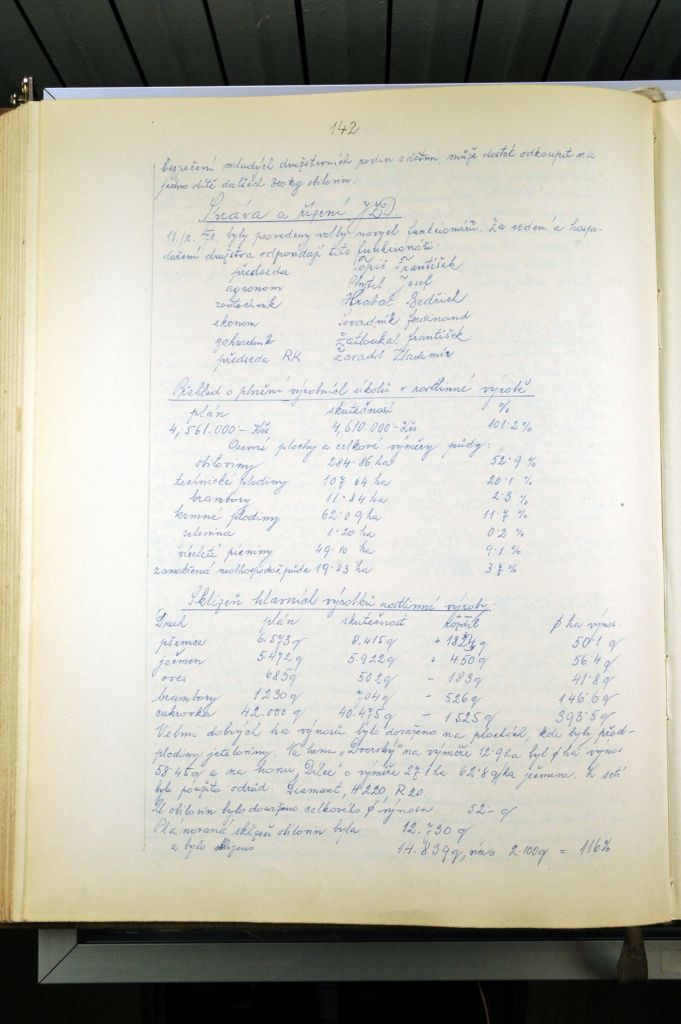 142
bezpečení mladých družstevních rodin s dětmi, může dostat odkoupit na
jedno dítě dalších 300 kg obilovin.
Správa a řízení JZD
11./2. 71. byly provedeny volby nových funkcionářů. Za vedení a hospo-
daření družstva odpovídají tito funkcionáři:
předseda Topič František
agronom Chytil Josef
zootechnik Hrabal Bedřich
ekonom Ferdinand
Zatloukal František
předseda RK Zavadil Vladimír
Přehled o plnění výrobních úkolů v rostlinné výrobě
plán skutečnost %
4,561.000 - Kčs 4,610.000 - Kčs 101.2 %
Osevní plochy a celkové výměry půdy:
obiloviny 284.86 ha 52.9 %
technické plodiny 107.64 ha 20.1 %
brambory 11.84 ha 2.3 %
krmné plodiny 62.09 ha 11.7 %
zelenina 1.20 ha 0.2 %
víceleté pícniny 49.10 ha 9.1 %
zamokřená neobhospodař. půda 19.83 ha 3.7 %
Sklizeň hlavních výrobků rostlinné výroby:
Druh plán skutečnost rozdíl ϕ ha výnos.
pšenice 6.573 q 8.415 q + 1824 q 50.1 q
ječmen 5.472 q 5.922 q + 450 q 56.4 q
oves 685 q 502 q - 183 q 41.8 q
brambory 1230 q 704 q - 526 q 146.6 q
cukrovka 42.000 q 40.475 q - 1525 q 393.5 q
Velmi dobrých ha výnosů bylo dosaženo na plochách, kde byly před-
plodiny jeteloviny. Na honu "Dvorský" na výměře 12.9 ha byl ϕ ha výnos
58.45 q a na honu "Dílce" o výměře 27.1 ha 62.8 q/ha ječmene. K setí
bylo použito odrůd. Diamant, H 220, R 20.
U obilovin bylo dosaženo celkového ϕ výnosu 52 - q
Plánovaná sklizeň obilovin byla 12.730 q
a bylo sklizeno 14.839 q, více 2.100 q = 116 %